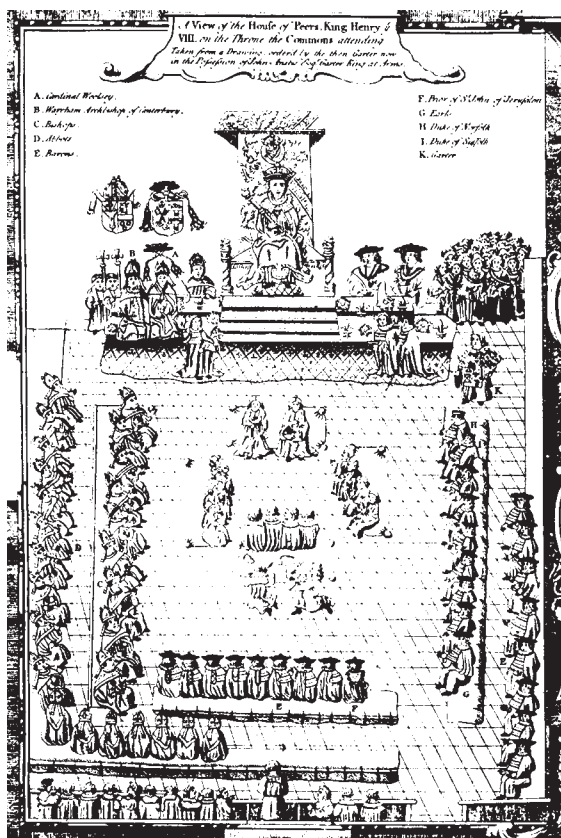 A View of the House of Peers, King Henry ẙ
VIII. on the Throne the Commons attending
Taken from a Drawing order'd by the then Garter now
in the Possession of John Anstis Esq.r Garter King at Arms.
A. Cardinal Woolsey.
B. Warham Archbishop of Canterbury.
C. Bishops
D. Abbots
E. Barons.
F. Prior of St. John of Jerusalem
G Earls
H. Duke of Norfolk
I. Duke of Suffolk
K. Garter
B A
K
H
D
E
G
E F